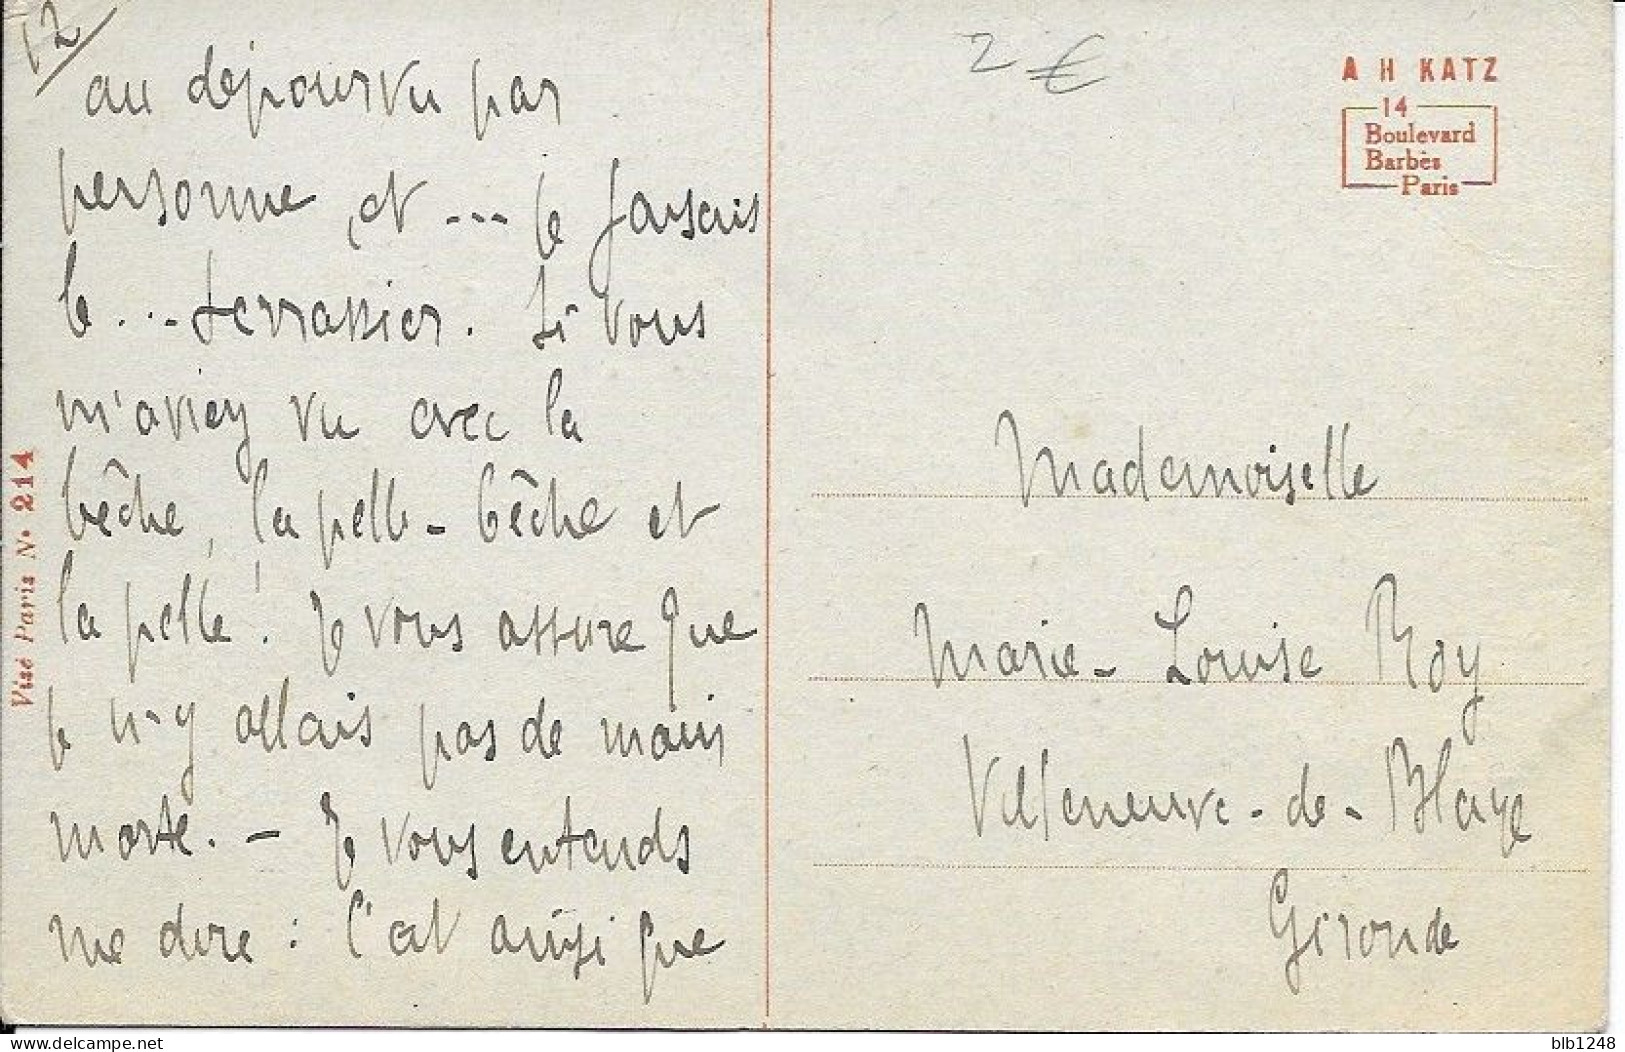 2
au dépourvu par
personne, et --- je faisais
le ...- terrassier. Si vous
m'aviez vu avec la
bêche, la pelle-bêche et
la pelle! Je vous assure que
je n'y allais pas de main
morte. - Je vous entends
me dire : C'est ainsi que
Visé Paris N° 214
2 €
A H KATZ
14
Boulevard
Barbès
Paris
Mademoiselle
Marie-Louise Roy
Villeneuve-de-Blaye
Gironde
blb1248